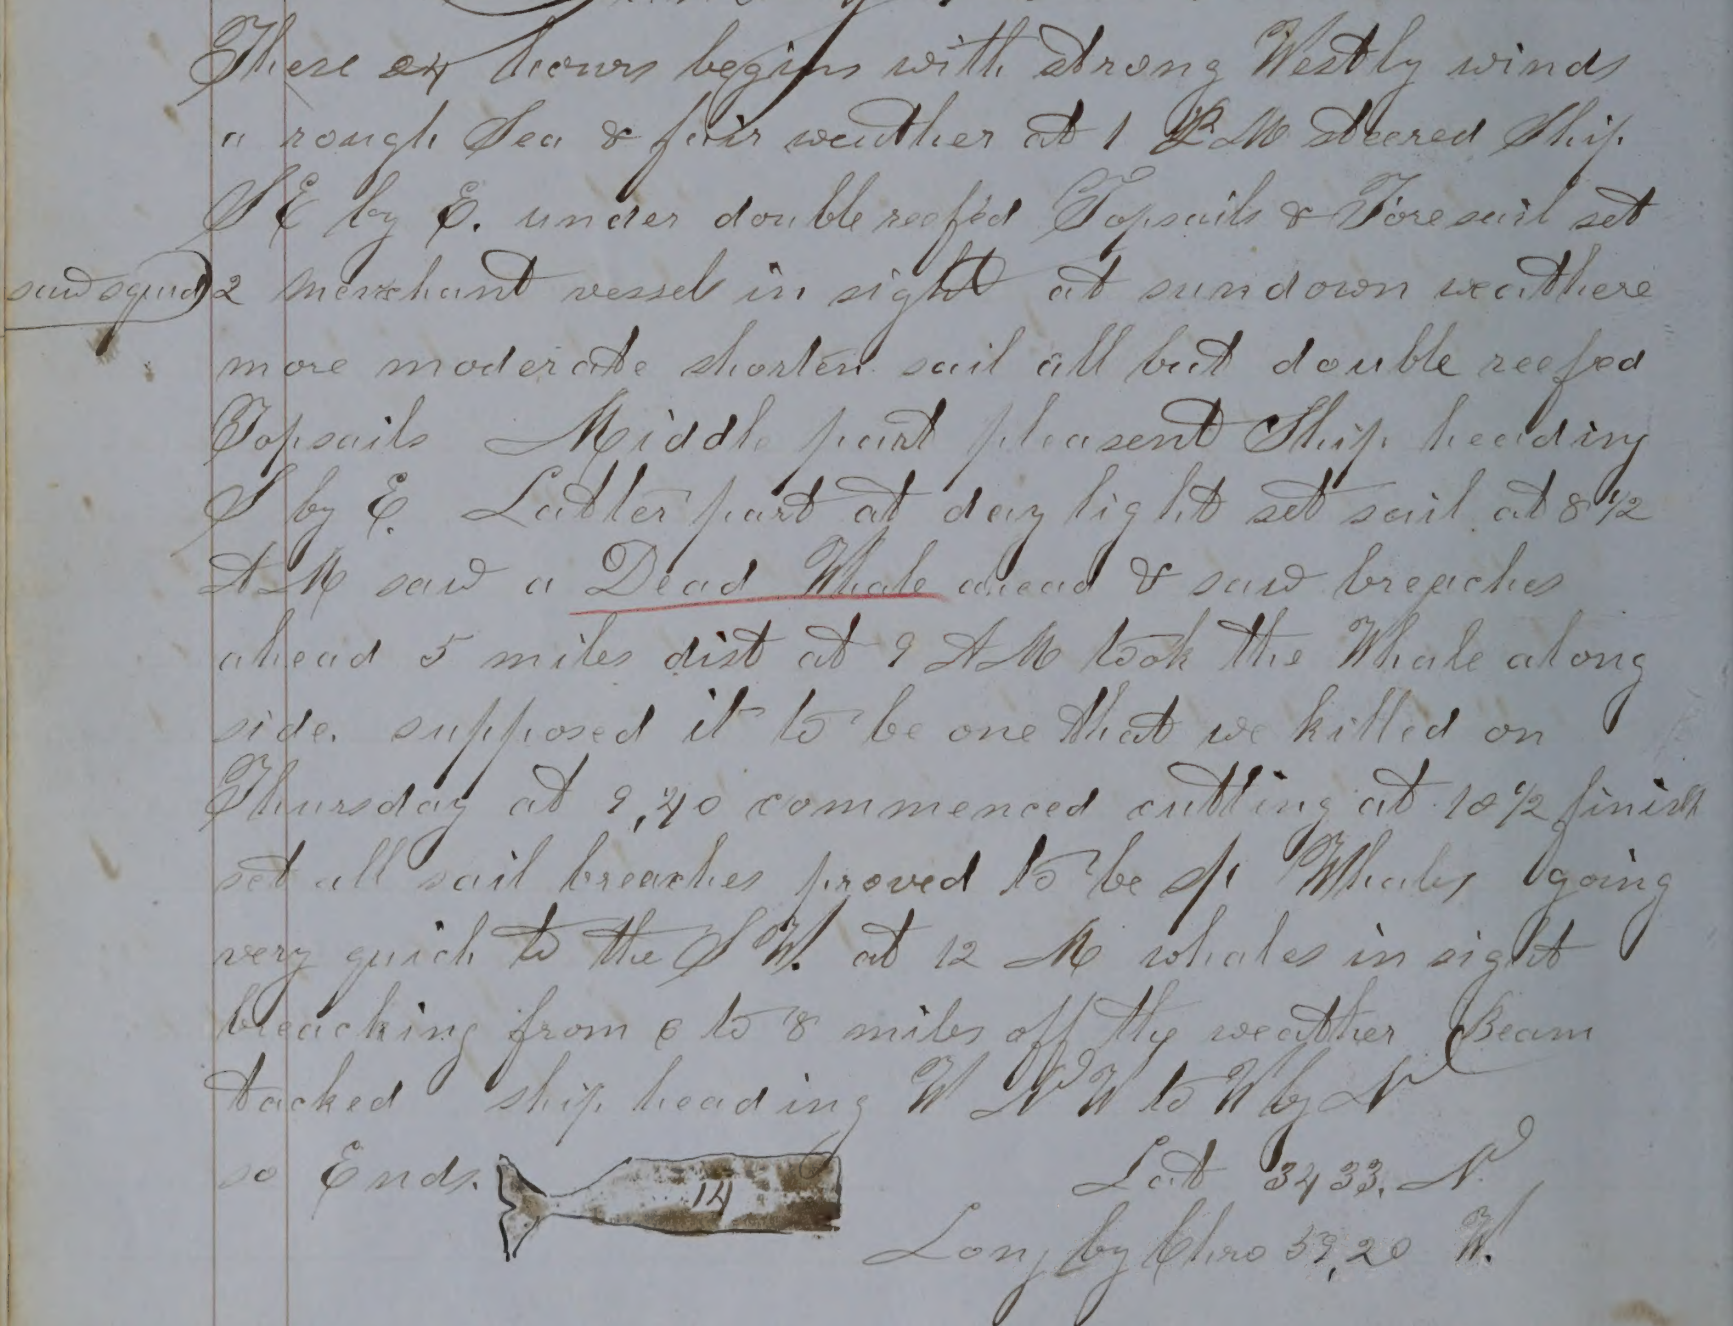 These 24 hours begins with strong Westly winds
a rough Sea & fair weather at 1 P M steered Ship
S E by E. under double reefed Topsails & Foresail set
saw squid
2 merchant vessels in sight at sundown weathere
more moderate shorten sail all but double reefed
Topsails Middle part pleasent Ship heading
S by E. Latter part at day light set sail at 8 1/2
A M saw a Dead Whale ahead & saw breaches
ahead 5 miles dist at 9 A M took the Whale along
side. supposed it to be one that we killed on
Thursday at 9,40 commenced cutting at 10 1/2 finish
set all sail breaches proved to be sp Whales going
very quick to the S W. at 12 M whales in sight
breacking from 6 to 8 miles off the weather Beam
tacked ship heading W N W to W by N
so Ends.
14
Lat 34 33. N.
Long by Chro 59,20 W.